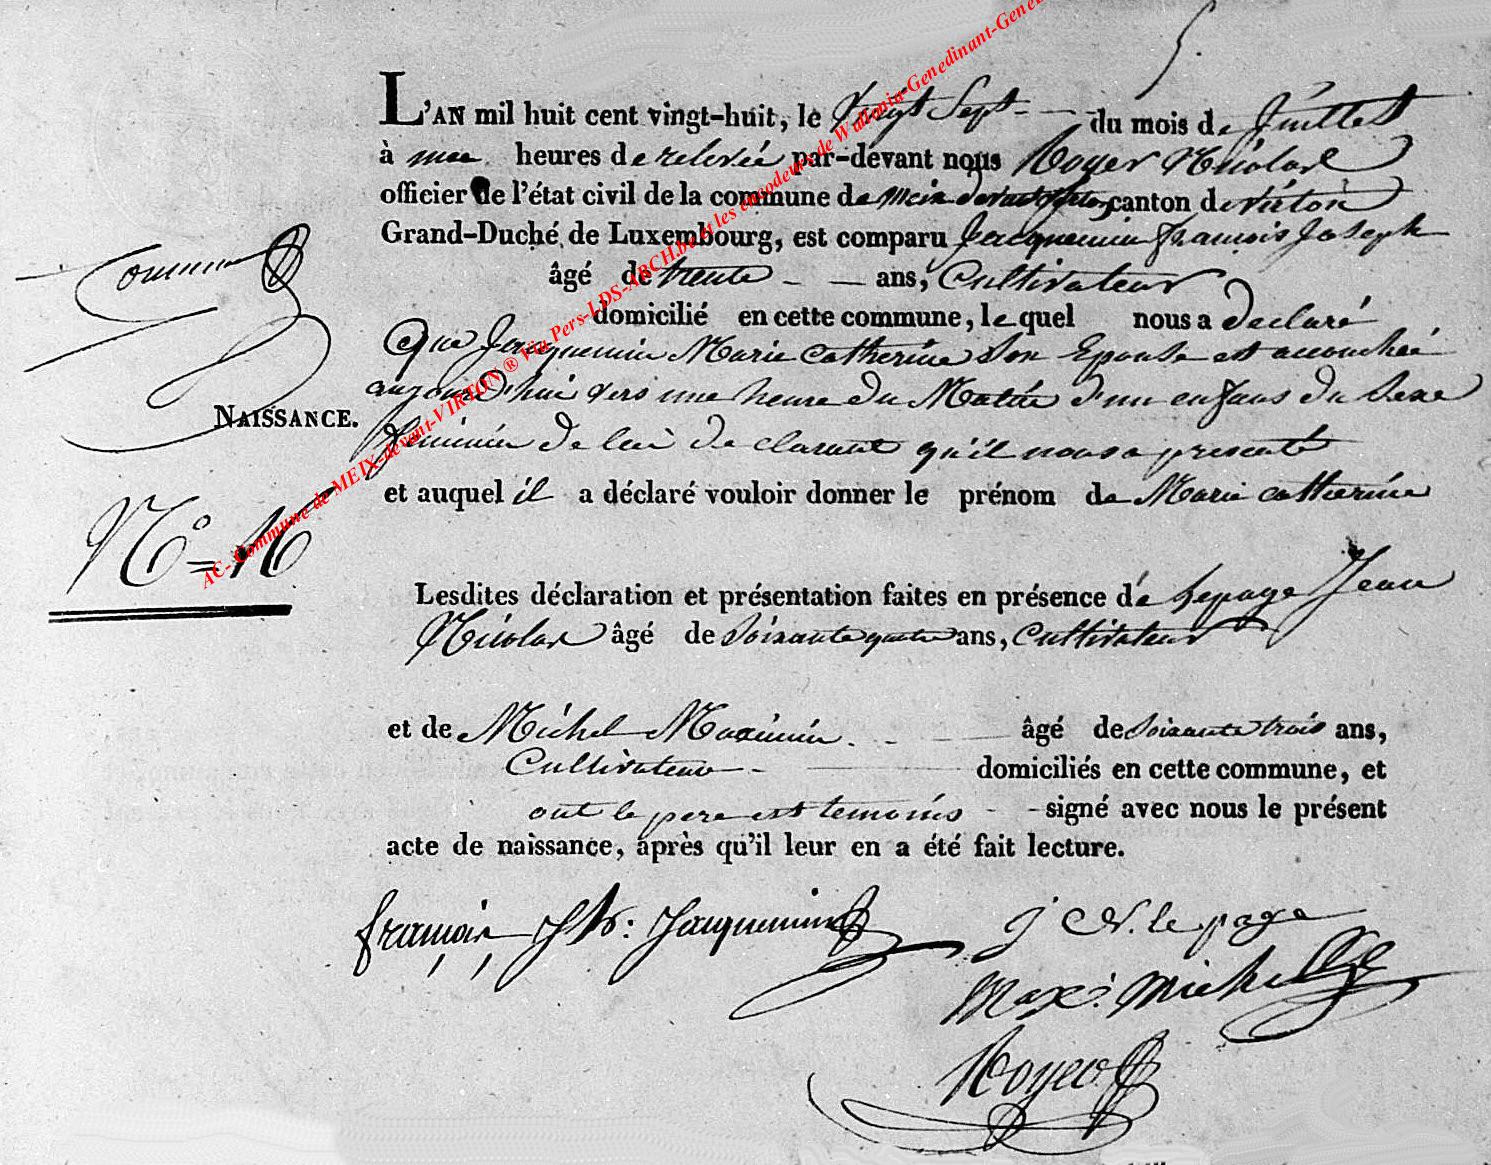 5.
L'AN mil huit cent vingt-huit, le Vingt Sept - du mois de Juillet
à une heures de relevée par-devant nous Royer Nicolas
officier de l'état civil de la commune de Meix devant Virton, canton de Virton
Grand-Duché de Luxembourg, est comparu Jacquemin François Joseph
âgé de trente - - ans, Cultivateur
domicilié en cette commune, lequel nous a declaré
Que Jacquemin Marie Catherine son Epouse est accouchée
aujourd'hui vers une heure du Matin d'un enfans du Sexe
feminin de lui declarant qu'il nous a presenté
et auquel il a déclaré vouloir donner le prénom de Marie catherine
Commune
NAISSANCE.
N° = 16
Lesdites déclaration et présentation faites en présence de Lepage Jean
Nicolas âgé de Soixante quatre ans, Cultivateur
et de Michel Maximin - - âgé de Soixante trois ans,
Cultivateur - domiciliés en cette commune, et
ont le pere est temoins - - signé avec nous le présent
acte de naissance, après qu'il leur en a été fait lecture.
françois Jh: Jacquemin
J N. le page
Max: Michel
Royer
AC- Commune de MEIX-devant-VIRTON ® Via Pers-LDS-ARCH.be et les encodeurs de Wallonia-Genedinant-Gene